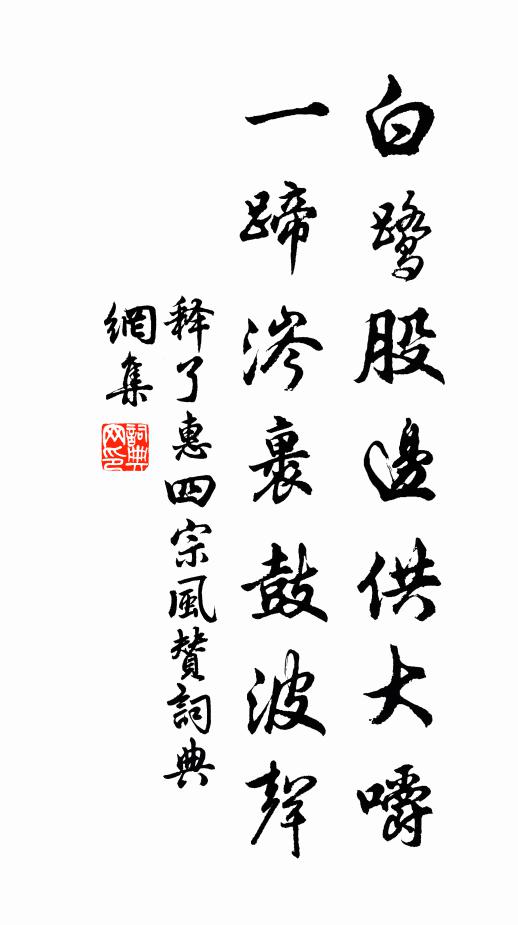 白鹭股邊供大嚼
一蹄涔裹鼓波聲
释了惠四宗風贊詞典
網集
詞典網印